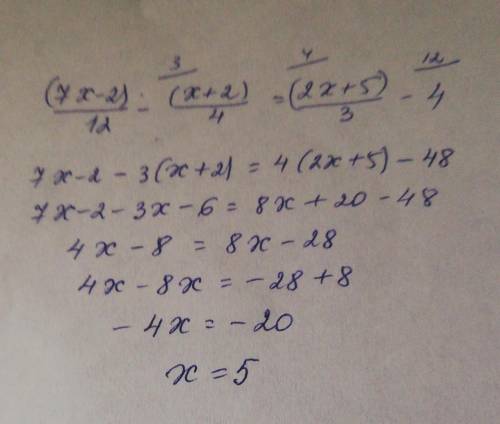 (7x-2)/12 - ³(x+2)/4 = ⁴(2x+5)/3 - ¹²4
7x-2-3(x+2) = 4(2x+5)-48
7x-2-3x-6 = 8x+20-48
4x-8 = 8x-28
4x-8x = -28+8
-4x = -20
x = 5